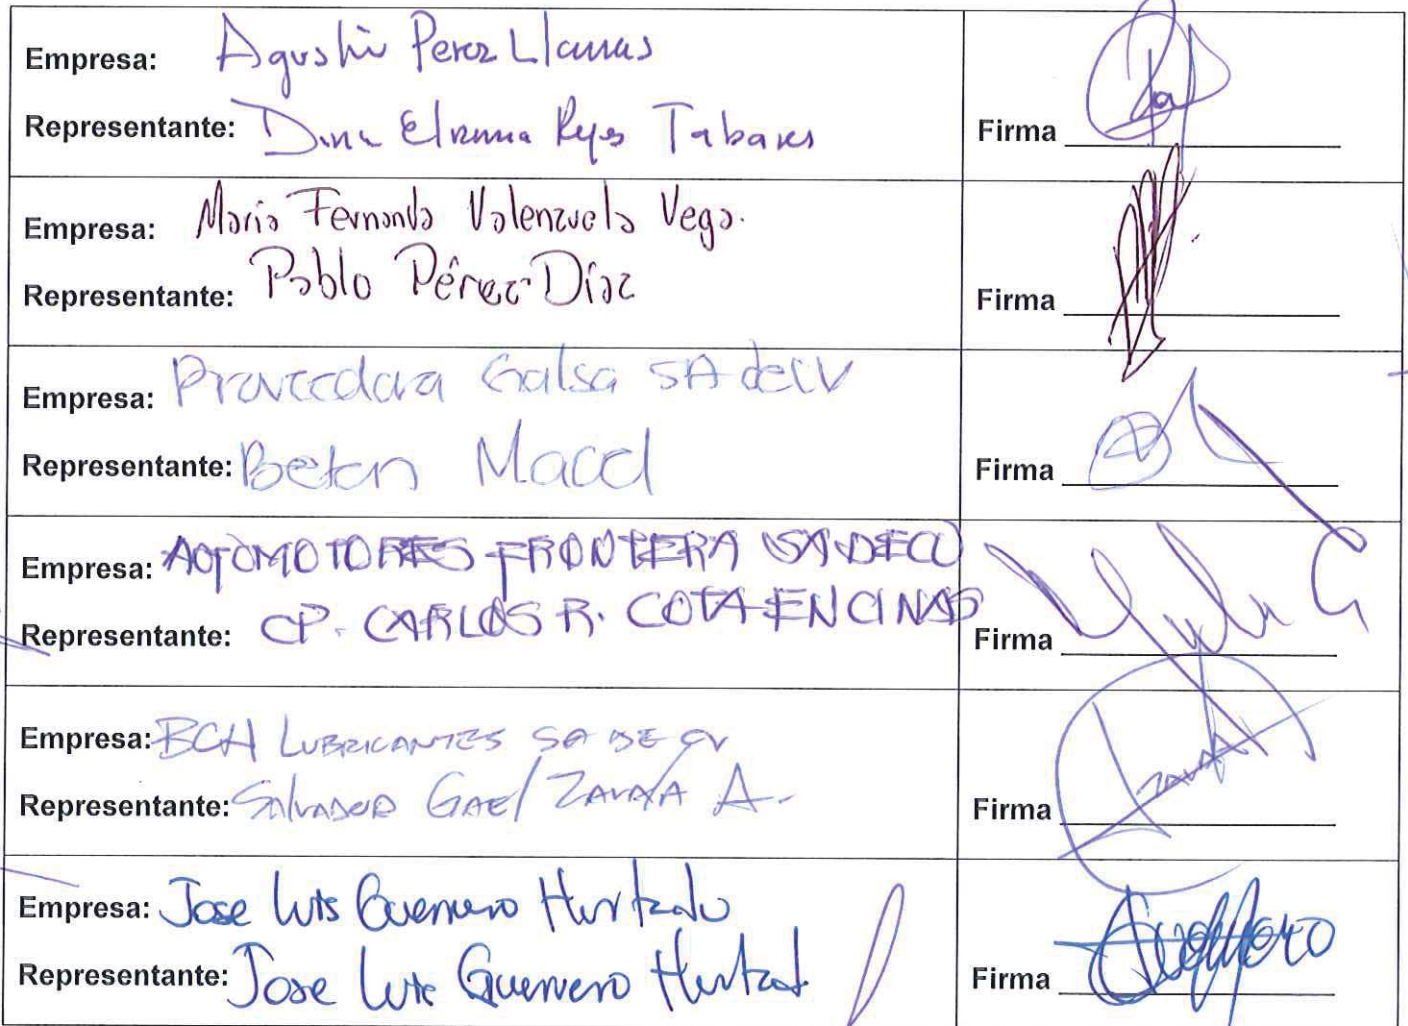 Empresa: Agustin Perez Llamas
Representante: Reyes Tabares
Firma
Empresa: Maria Fernanda Valenzuela Vega.
Representante: Pablo Pérez Díaz
Firma
Empresa: Proveedora Galsa SA de CV
Representante: Macel
Firma
Empresa: AUTOMOTORES FRONTERA SA DE CV
Representante: CP. CARLOS R. COTA ENCINAS
Firma
Empresa: BCH LUBRICANTES SA DE CV
Representante: SALVADOR GAEL ZAVALA A.
Firma
Empresa: Jose Luis Guerrero Hurtado
Representante: Jose Luis Guerrero Hurtado
Firma